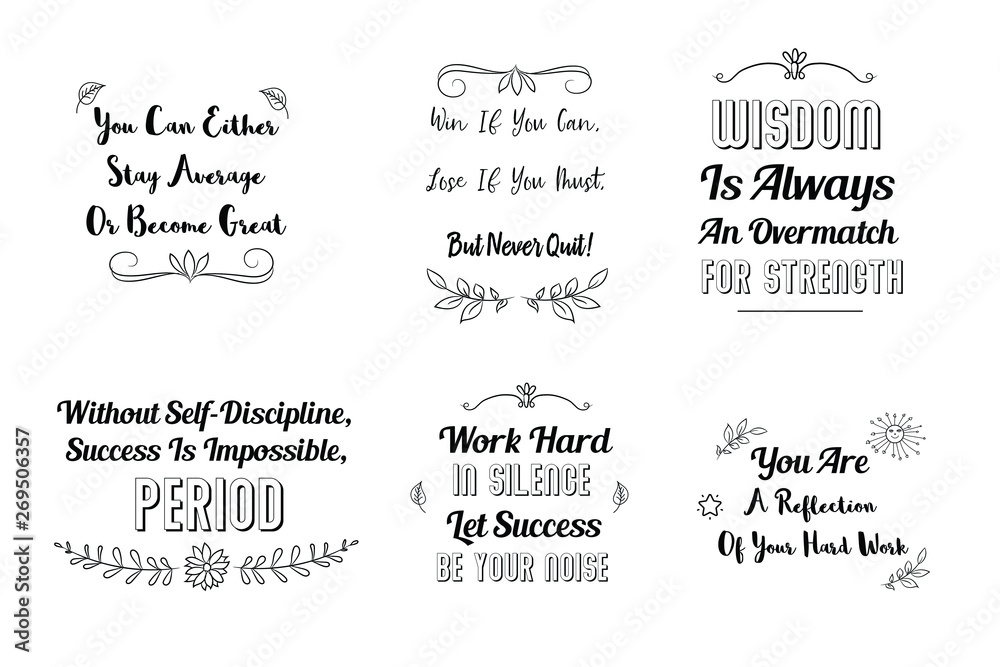 You Can Either
Stay Average
Or Become Great
Win If You Can,
Lose If You Must,
But Never Quit!
WISDOM
Is Always
An Overmatch
FOR STRENGTH
Without Self-Discipline,
Success Is Impossible,
PERIOD
Work Hard
IN SILENCE
Let Success
BE YOUR NOISE
You Are
A Reflection
Of Your Hard Work
Adobe Stock | #269506357